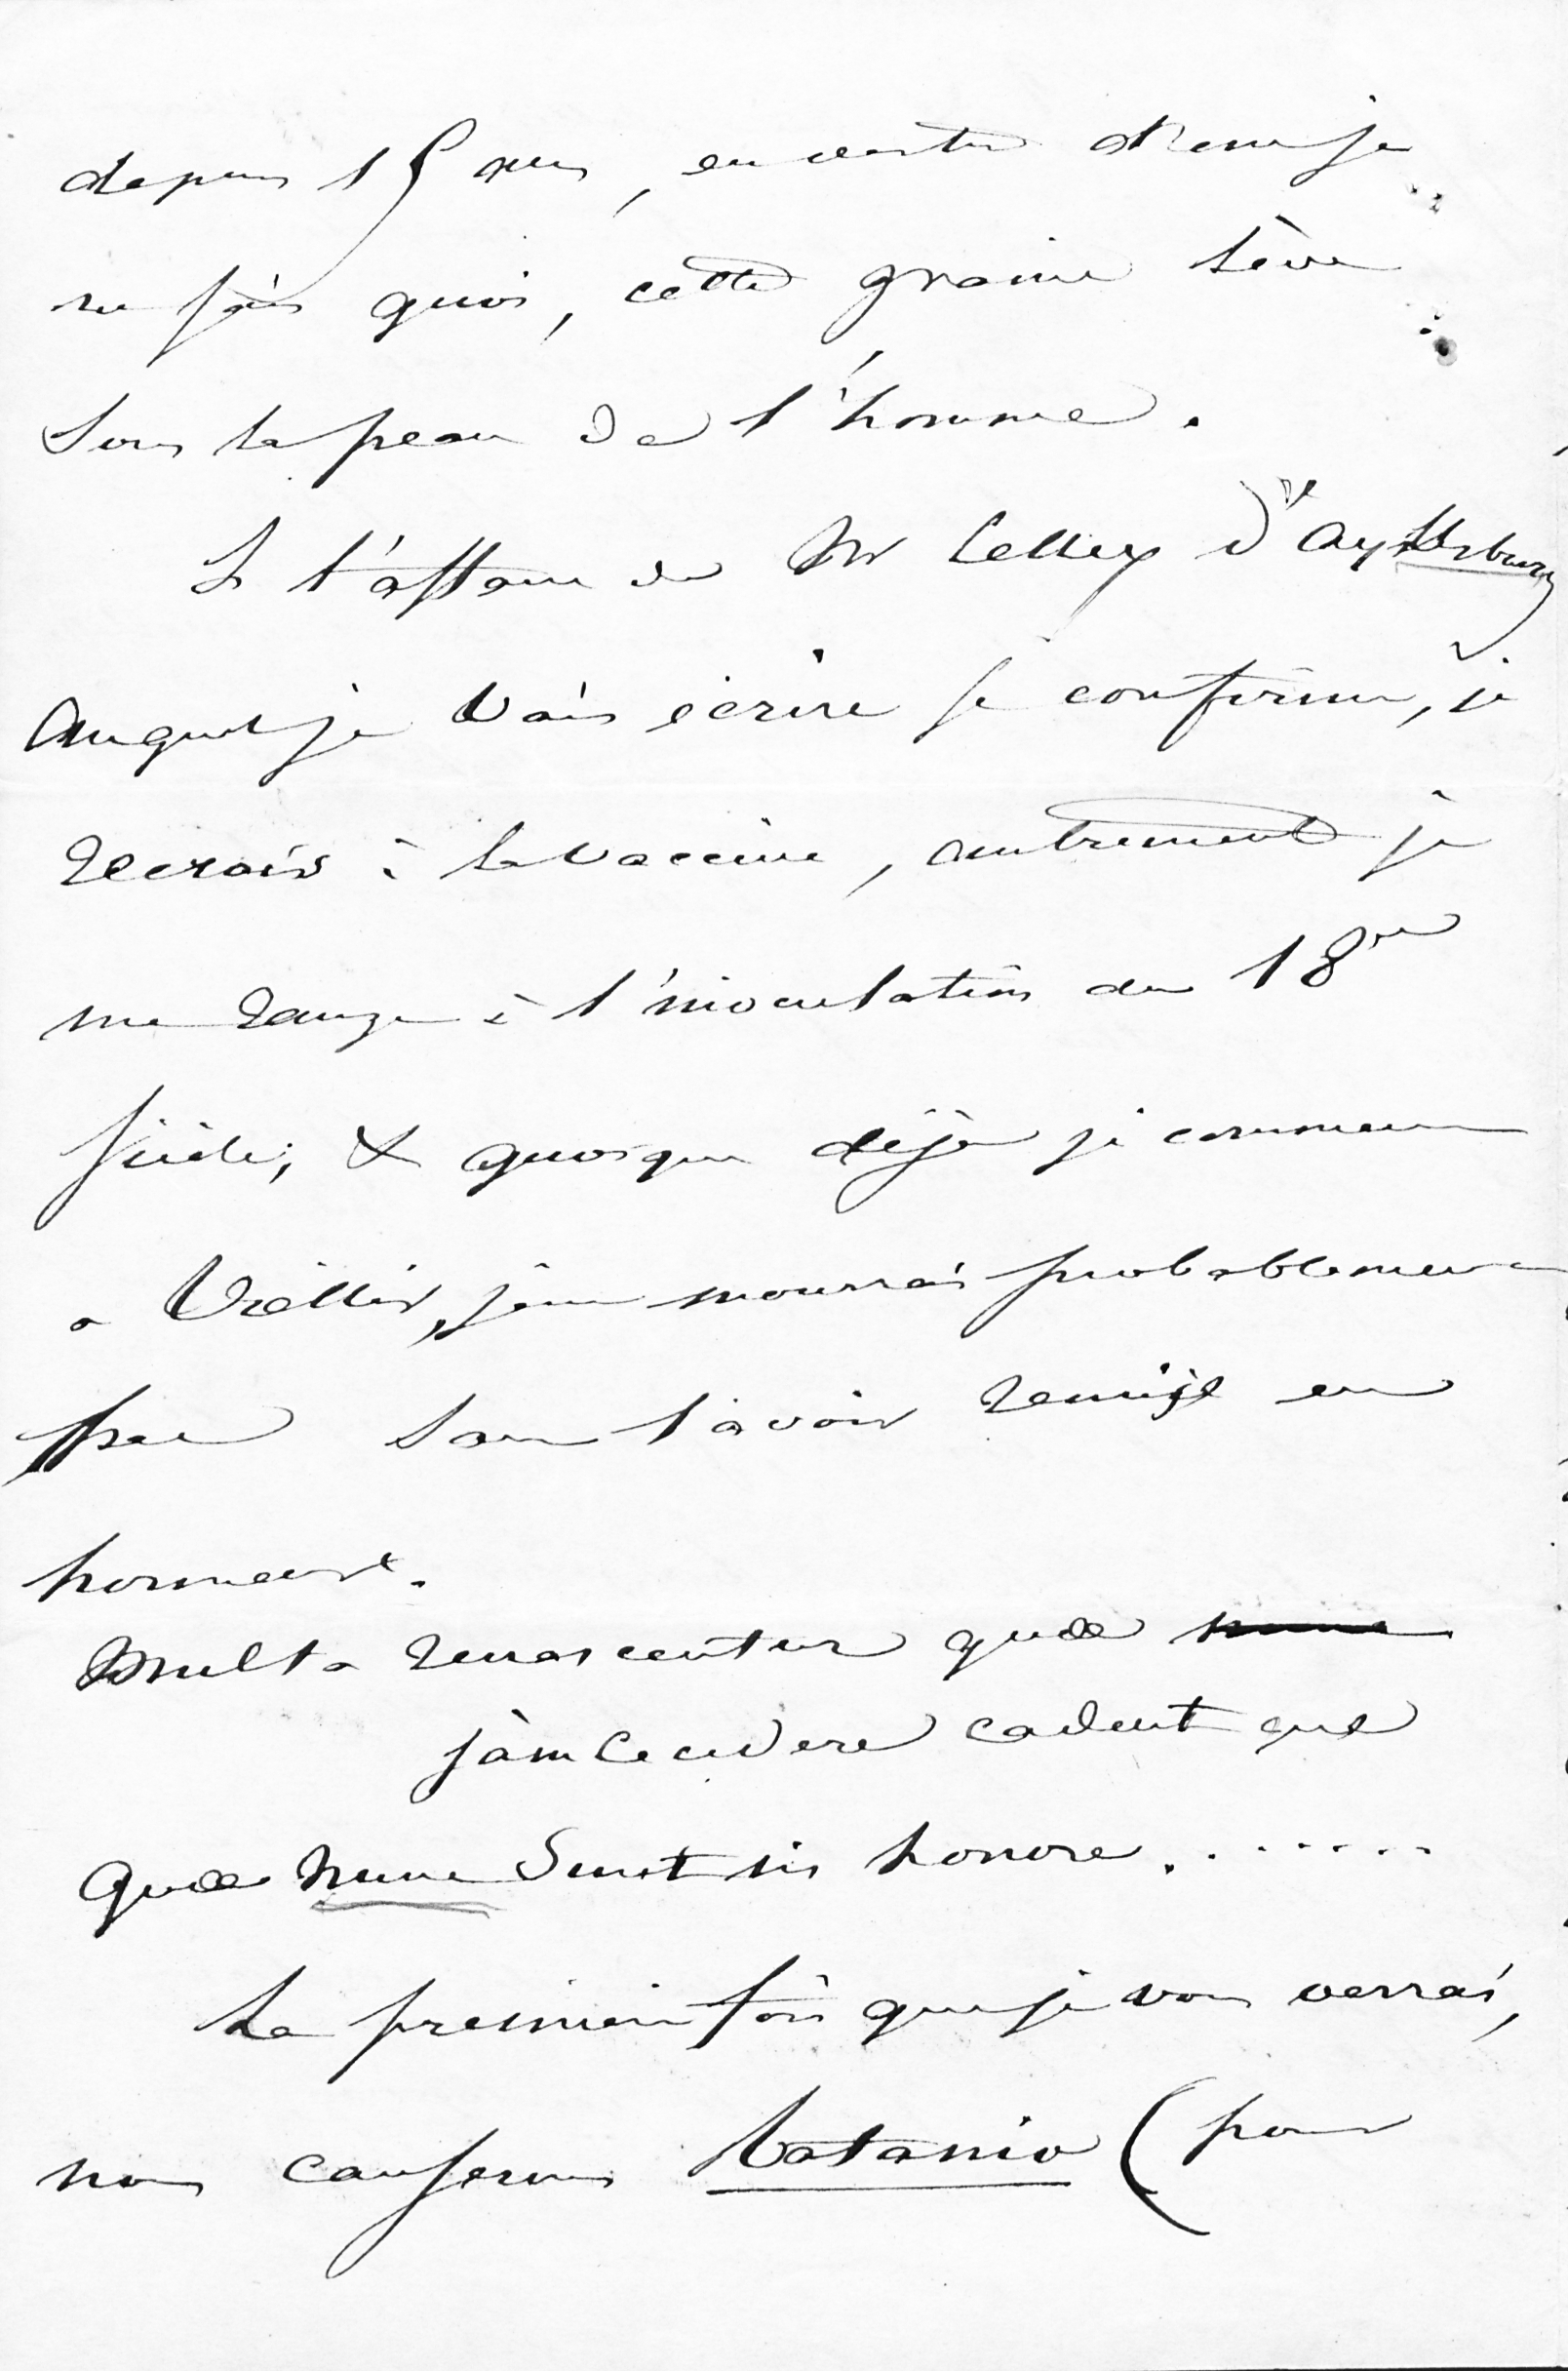 depuis 15 ans, en vertu d'un je
ne sais quoi, cette graine lève
sous la peau de l'homme.
Si l'affaire de Mr Celley d'Aylesbury
auquel je vais écrire se confirme, je
recrois à la vaccine, autrement je
me range à l'inoculation du 18me
siècle, & quoique déjà je commence
a viellir, je ne mourrai probablement
pas sans l'avoir remise en
honneur.
Multa renascentur quae
jàm cecidere cadent que
Quae nunc Sunt in honore.......
La première fois que je vous verrai,
nous causerons Ratania (pour